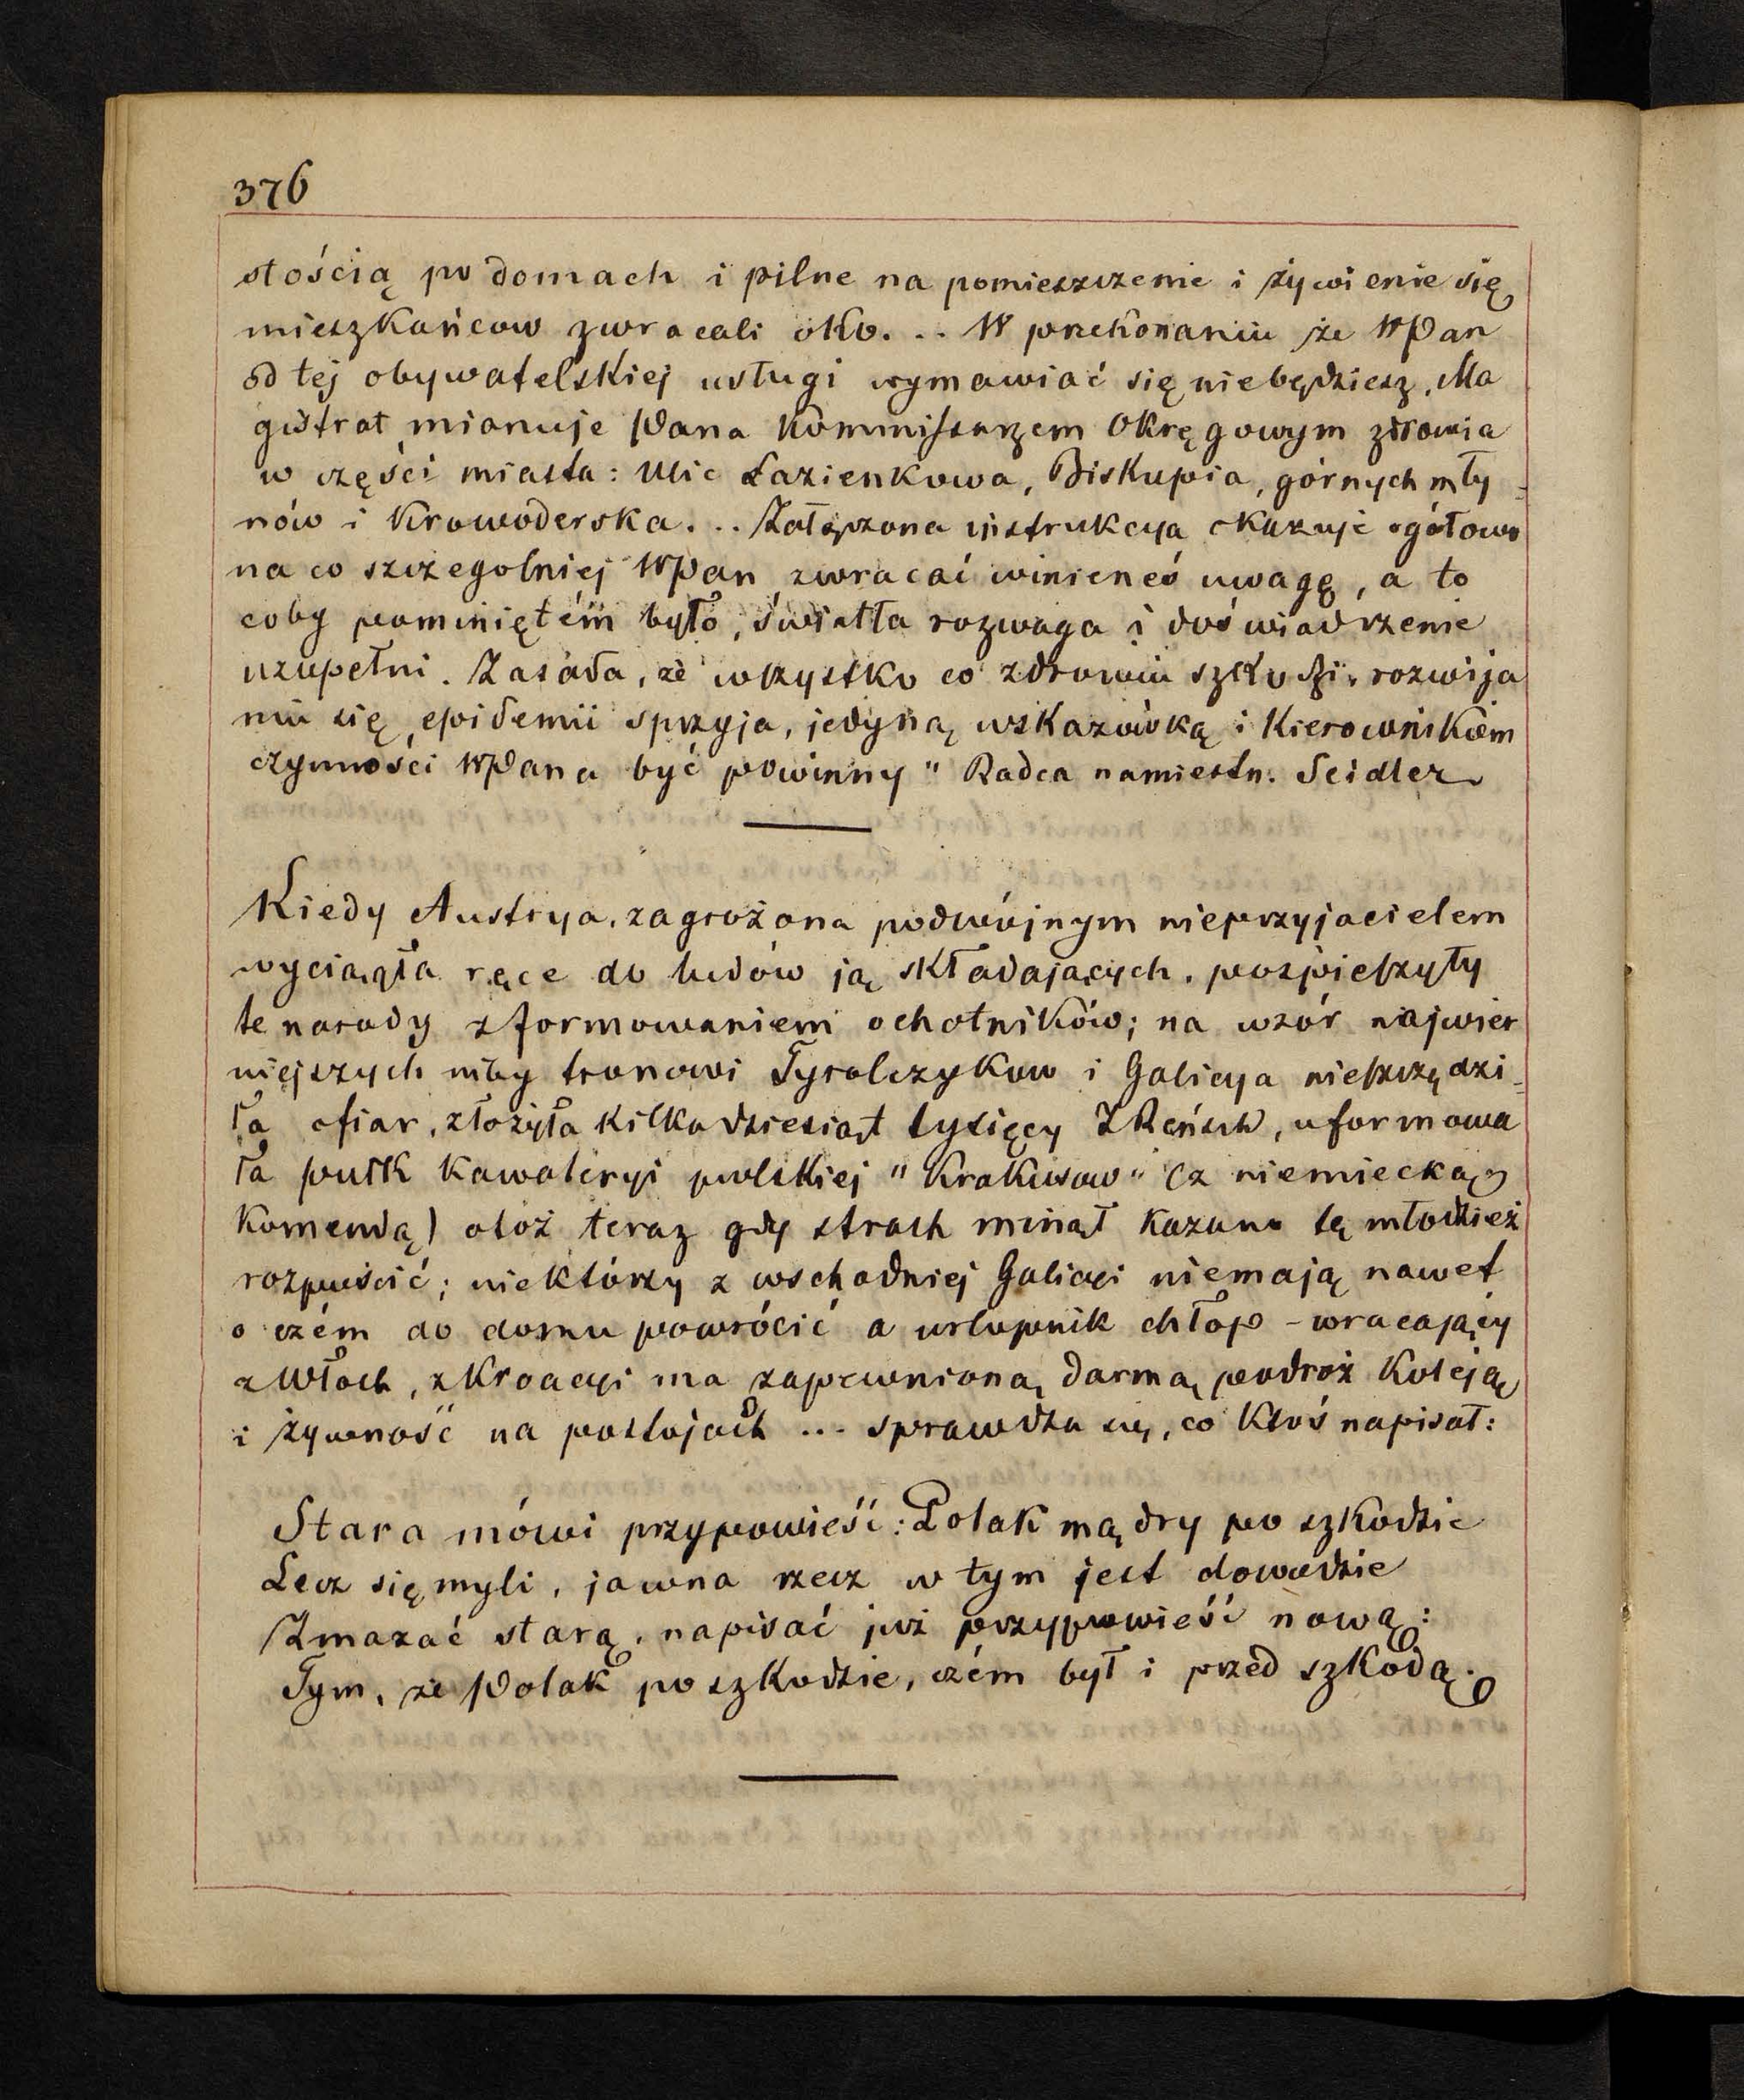 376
stością po domach i pilne na pomieszczenie i żywienie się
mieszkańcow zwracali oko... W przekonaniu że WPan
od tej obywatelskiej usługi wymawiać się niebędziesz, Ma
gistrat mianuje Pana Kommissarzem Okręgowym zdrowia
w części miasta: Ulic Łazienkowa, Biskupia, górnych mły-
nów i Krowoderska... Załączona instrukcya okazuje ogółowo
na co szczegolniej WPan zwracać winieneś uwagę, a to
coby pominiętém było, światła rozwaga i doświadczenie
uzupełni. Zasada, że wszystko co zdrowiu szkodzi, rozwija
niu się epidemii sprzyja, jedyną wskazówką i Kierownikiem
czynności WPana być powinny" Radca namiestn. Seidler
Kiedy Austrya, zagrożona podwójnym nieprzyjacielem
wyciągła ręce do ludów ją składających, pospieszyły
te narody z formowaniem ochotników; na wzór najwier
niejszych niby tronowi Tyrolczykow i Galicya nieszczędzi-
ła ofiar, złożyła kilkadziesiąt tysięcy ZReńsch, uformowa
ła pułk kawaleryi polskiej "Krakusow" (z niemiecką
Komendą) otoż teraz gdy strach minął kazano tę młodzież
rozpuścić; niektórzy z wschodniej Galicyi niemają nawet
o czém do domu powrócić a urlopnik chłop - wracający
z Włoch, z Kroacyi ma zapewnioną darmą podroż Koleją
i żywność na postojach ... sprawdza się, co Ktoś napisał:
Stara mówi przypowieść: Polak mądry po szkodzie
Lecz się myli, jawna rzecz w tym jest dowodzie
Zmazać starą, napisać już przypowieść nową:
Tym, że Polak po szkodzie, czém był i przed szkodą.